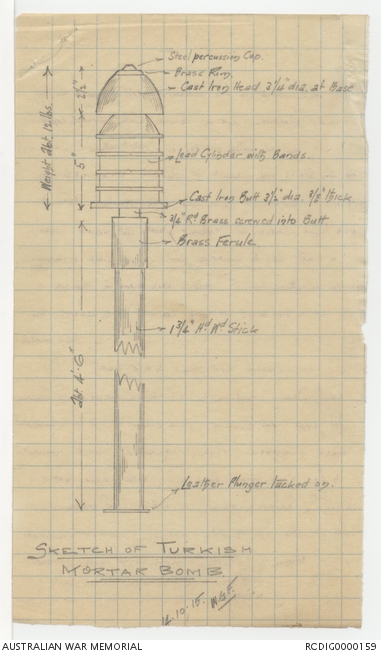 Steel percussion Cap.
Brass Rim.
Cast Iron Head 3¼" dia. at Base
2½"
Weight abt. 12 lbs.
5"
Lead Cylinder with Bands.
Cast Iron Butt 3½" dia. 3/8" thick
¾" Rd Brass screwed into Butt
Brass Ferule
1¾" Hd Wd Stick
Abt 4'-6"
Leather Plunger tacked on.
SKETCH OF TURKISH
MORTAR BOMB
12.10.15.
AUSTRALIAN WAR MEMORIAL
RCDIG0000159